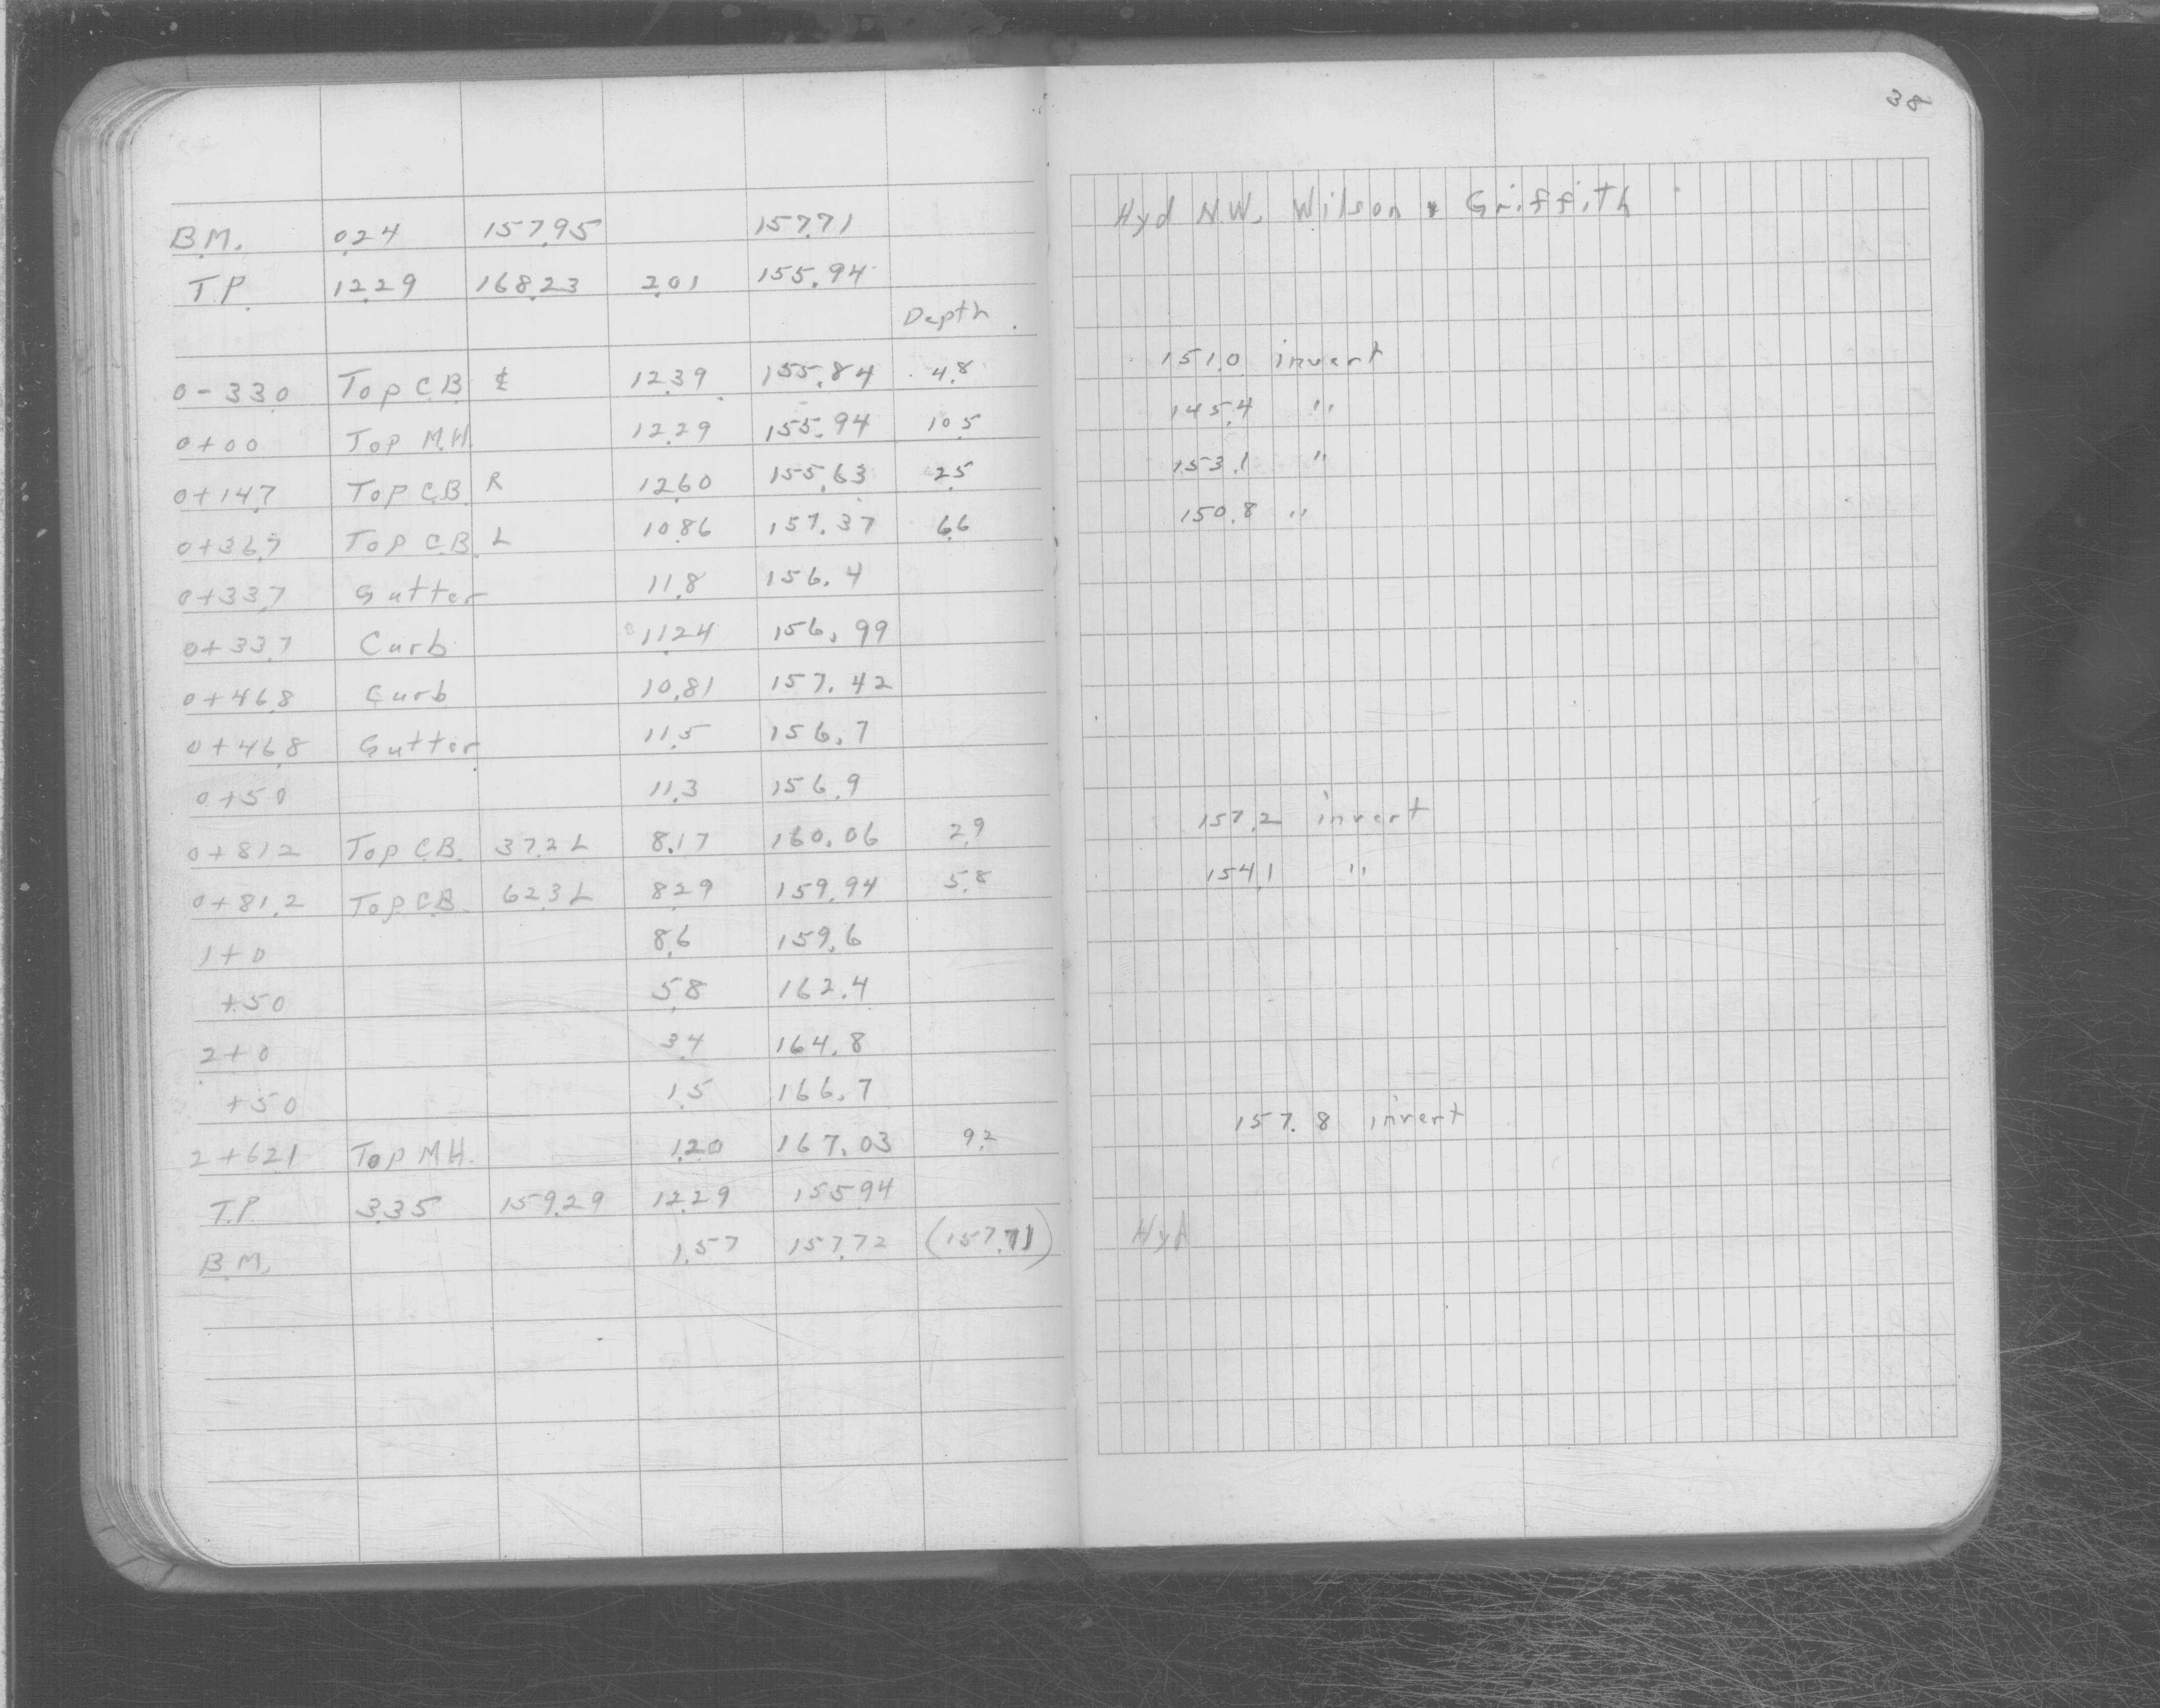 38
B.M. 0.24 157.95 157.71 Hyd N.W. Wilson & Griffith
T.P. 12.29 168.23 2.01 155.94
Depth
0-33.0 Top C.B. ℄ 12.39 155.84 4.8 151.0 invert
0+00 Top M.H. 12.29 155.94 10.5 145.4 "
0+14.7 Top C.B. R 12.60 155.63 2.5 153.1 "
0+36.7 Top C.B. L 10.86 157.37 6.6 150.8 "
0+33.7 Gutter 11.8 156.4
0+33.7 Curb 11.24 156.99
0+46.8 Curb 10.81 157.42
0+46.8 Gutter 11.5 156.7
0+50 11.3 156.9
0+81.2 Top C.B. 37.2 L 8.17 160.06 2.9 157.2 invert
0+81.2 Top C.B. 62.3 L 8.29 159.94 5.8 154.1 "
1+0 8.6 159.6
+50 5.8 162.4
2+0 3.4 164.8
+50 1.5 166.7
2+62.1 Top M.H. 1.20 167.03 9.2 157.8 invert
T.P. 3.35 159.29 12.29 155.94
B.M. 1.57 157.72 (157.71) Hyd